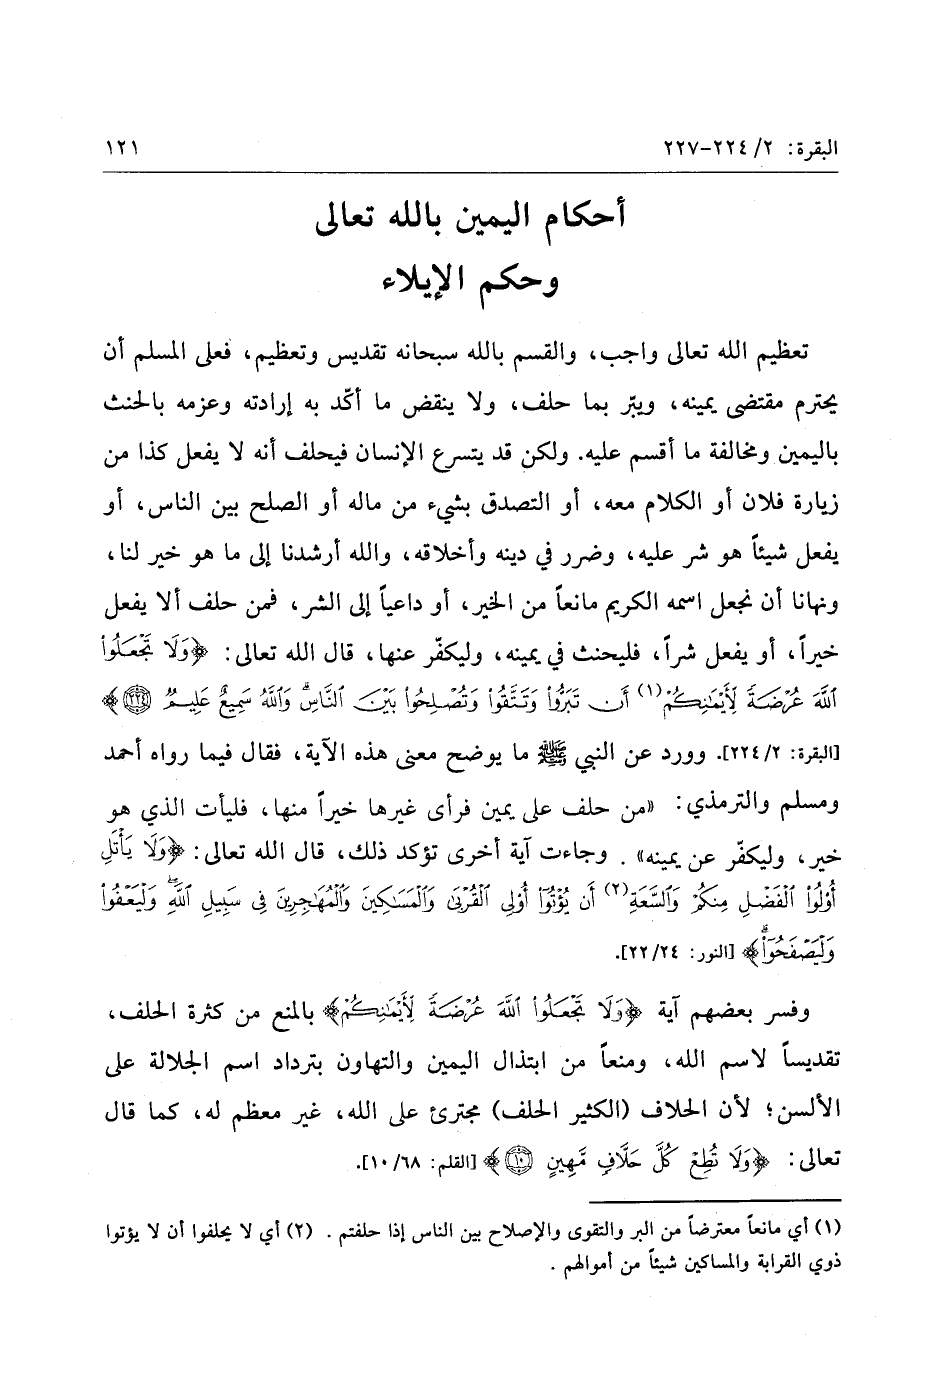 البقرة: ٢/ ٢٢٤-٢٢٧
١٢١
أحكام اليمين بالله تعالى
وحكم الإيلاء
تعظيم الله تعالى واجب، والقسم بالله سبحانه تقديس وتعظيم، فعلى المسلم أن
يحترم مقتضى يمينه، ويبّر بما حلف، ولا ينقض ما أكّد به إرادته وعزمه بالحنث
باليمين ومخالفة ما أقسم عليه. ولكن قد يتسرع الإنسان فيحلف أنه لا يفعل كذا من
زيارة فلان أو الكلام معه، أو التصدق بشيء من ماله أو الصلح بين الناس، أو
يفعل شيئاً هو شر عليه، وضرر في دينه وأخلاقه، والله أرشدنا إلى ما هو خير لنا،
ونهانا أن نجعل اسمه الكريم مانعاً من الخير، أو داعياً إلى الشر، فمن حلف ألا يفعل
خيراً، أو يفعل شراً، فليحنث في يمينه، وليكفّر عنها، قال الله تعالى: ﴿وَلَا تَجْعَلُوا۟
ٱللَّهَ عُرْضَةً لِّأَيْمَـٰنِكُمْ (١) أَن تَبَرُّوا۟ وَتَتَّقُوا۟ وَتُصْلِحُوا۟ بَيْنَ ٱلنَّاسِۗ وَٱللَّهُ سَمِيعٌ عَلِيمٌ ٢٢٤﴾
[البقرة: ٢/ ٢٢٤]. وورد عن النبي ﷺ ما يوضح معنى هذه الآية، فقال فيما رواه أحمد
ومسلم والترمذي: «من حلف على يمين فرأى غيرها خيراً منها، فليأت الذي هو
خير، وليكفّر عن يمينه» . وجاءت آية أخرى تؤكد ذلك، قال الله تعالى: ﴿وَلَا يَأْتَلِ
أُو۟لُوا۟ ٱلْفَضْلِ مِنكُمْ وَٱلسَّعَةِ (٢) أَن يُؤْتُوٓا۟ أُو۟لِى ٱلْقُرْبَىٰ وَٱلْمَسَـٰكِينَ وَٱلْمُهَـٰجِرِينَ فِى سَبِيلِ ٱللَّهِۖ وَلْيَعْفُوا۟
وَلْيَصْفَحُوٓا۟ۗ﴾ [النور: ٢٤/ ٢٢].
وفسر بعضهم آية ﴿وَلَا تَجْعَلُوا۟ ٱللَّهَ عُرْضَةً لِّأَيْمَـٰنِكُمْ﴾ بالمنع من كثرة الحلف،
تقديساً لاسم الله، ومنعاً من ابتذال اليمين والتهاون بترداد اسم الجلالة على
الألسن؛ لأن الحلاف (الكثير الحلف) مجترئ على الله، غير معظم له، كما قال
تعالى: ﴿وَلَا تُطِعْ كُلَّ حَلَّافٍ مَّهِينٍ ١٠﴾ [القلم: ٦٨/ ١٠].
(١) أي مانعاً معترضاً من البر والتقوى والإصلاح بين الناس إذا حلفتم . (٢) أي لا يحلفوا أن لا يؤتوا
ذوي القرابة والمساكين شيئاً من أموالهم .